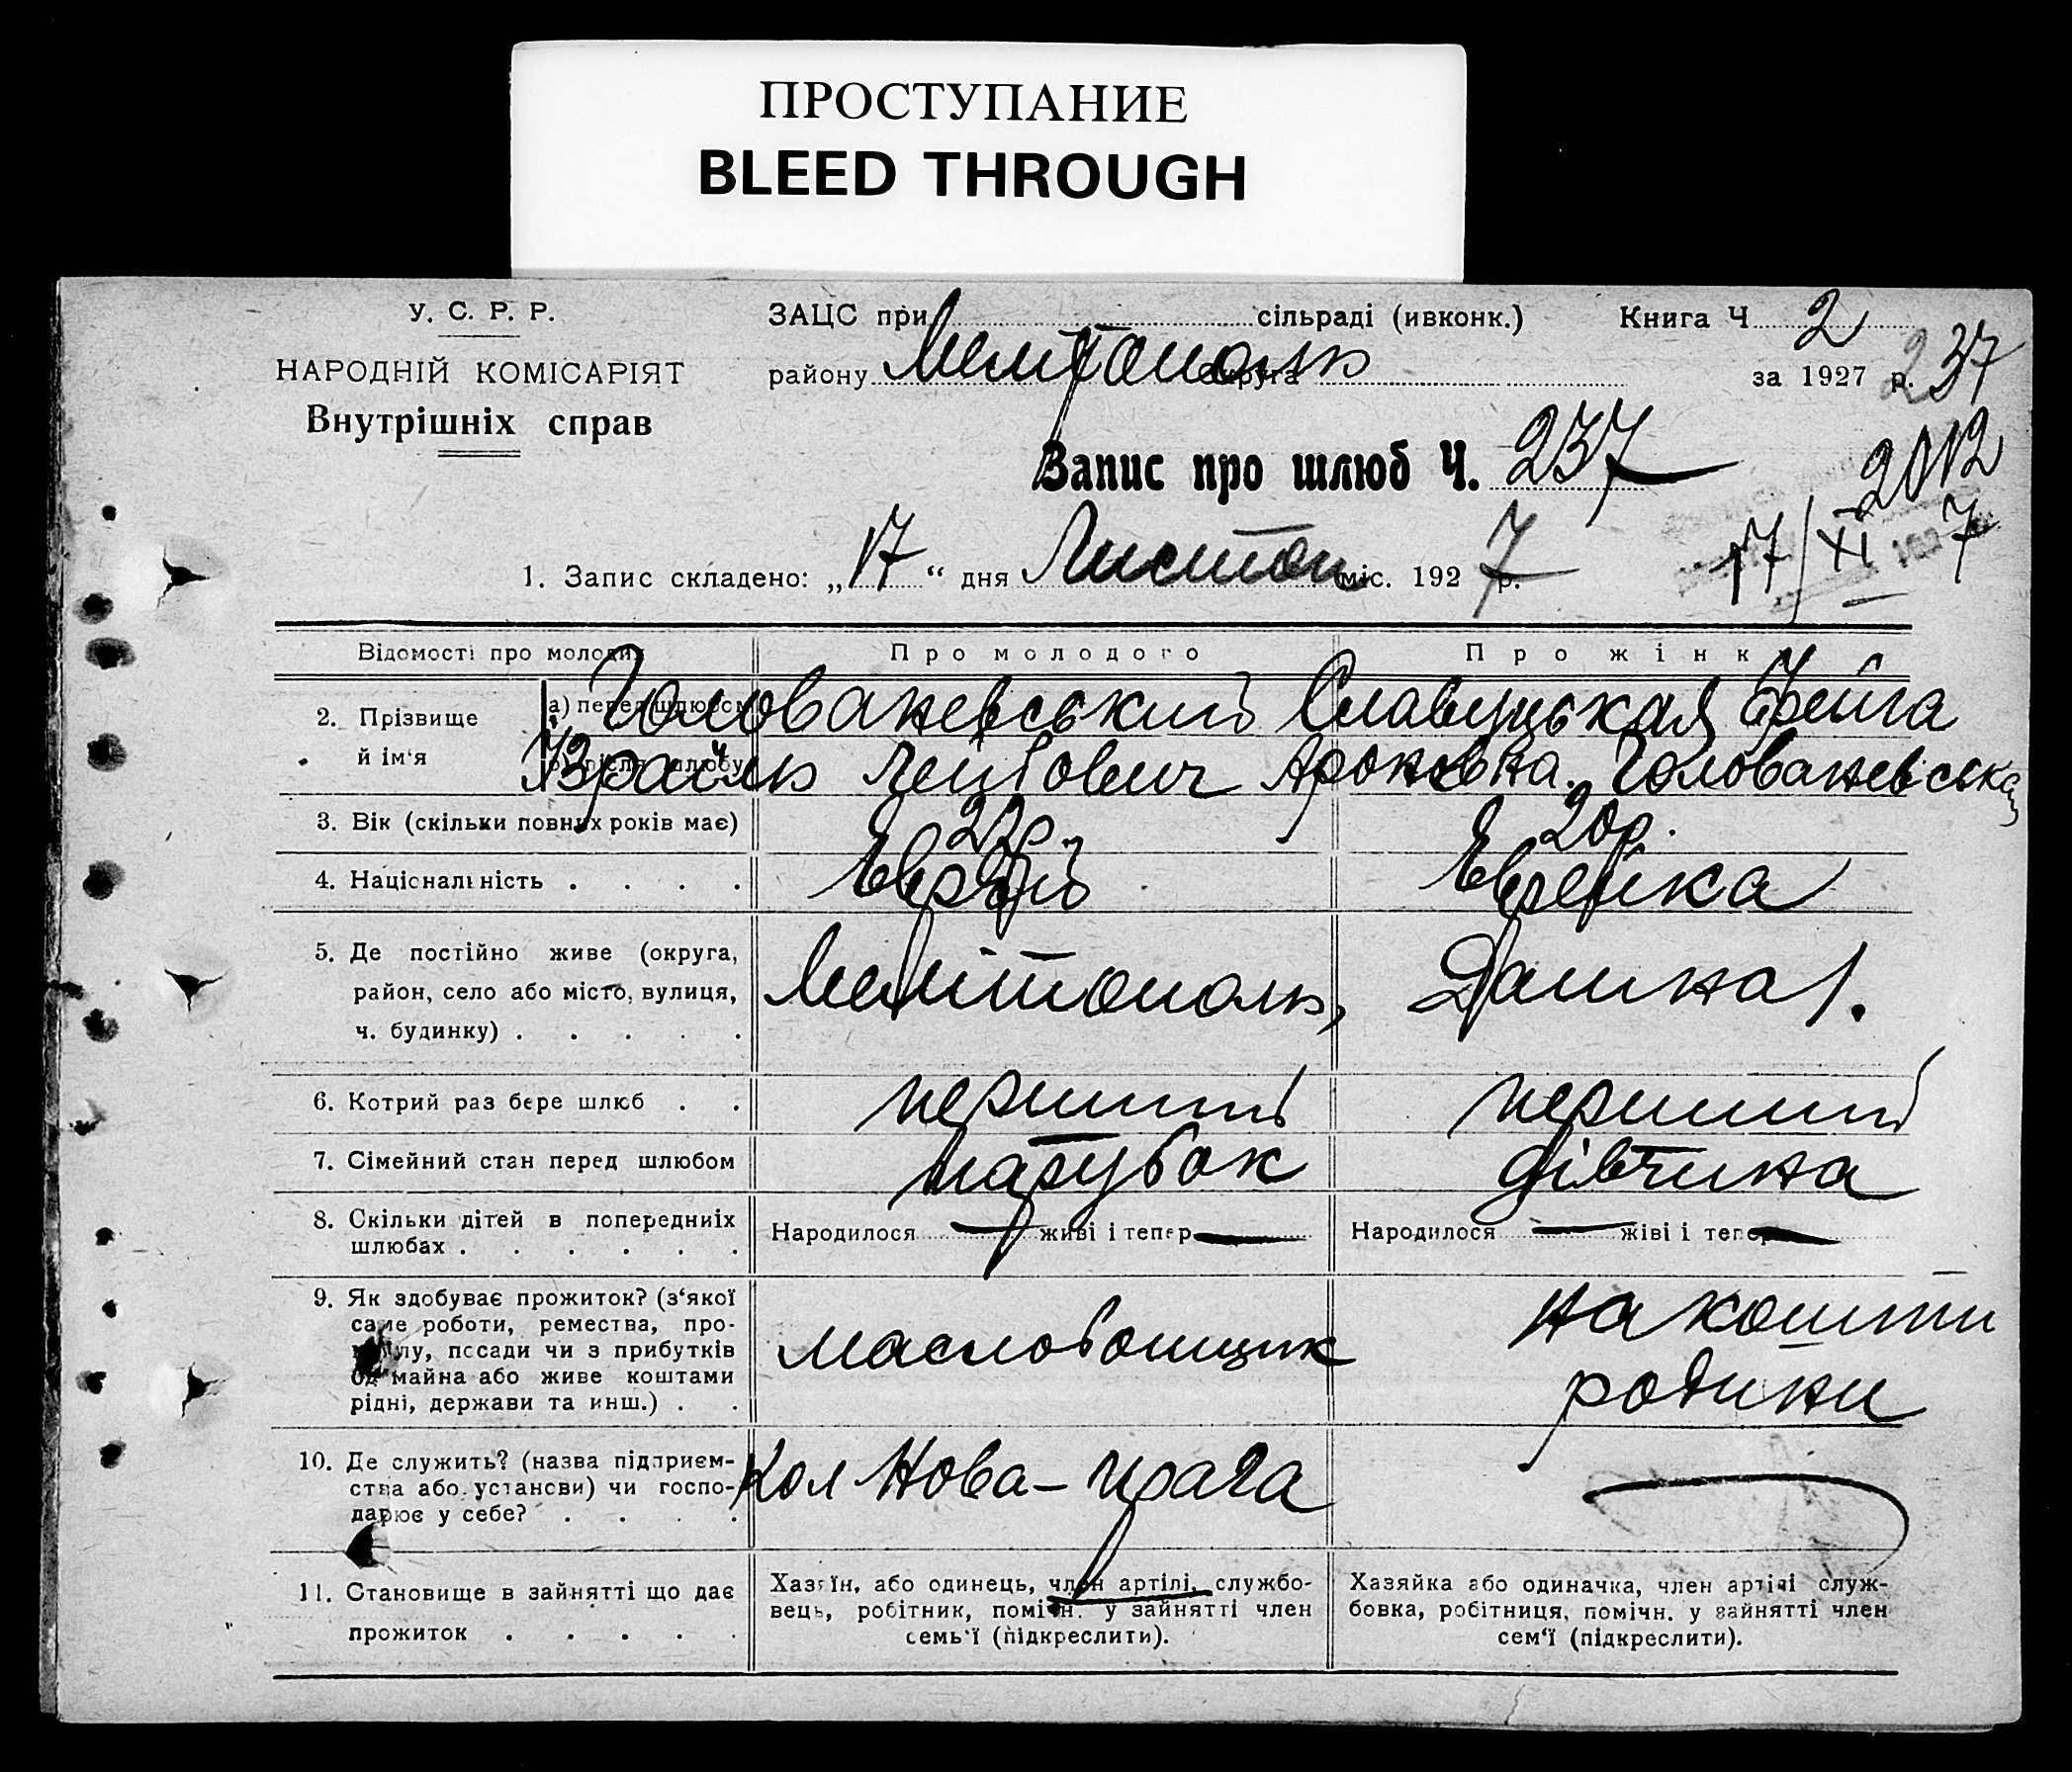 ПРОСТУПАНИЕ
BLEED THROUGH
У. С. Р. Р.
НАРОДНІЙ КОМІСАРІЯТ
Внутрішніх справ
ЗАЦС при сільраді (ивконк.)
району Мелітополь округа
Книга Ч 2
за 1927 р. 237
Запис про шлюб Ч. 237
2012
1. Запис складено: „17“ дня Листоп міс. 1927 р.
17/XI 7
Відомості про молодих
Про молодого
Про жінку
2. Прізвище й ім‘я
а) перед шлюбом
б) після шлюбу
Голованевський
Ізраїль Лейбович
Славуцькая Фейга
Ароновна. Голованевська
3. Вік (скільки повних років має)
22р.
20р.
4. Національність . . . .
Еврей
Еврейка
5. Де постійно живе (округа,
район, село або місто, вулиця,
ч. будинку) . . . . .
Мелітополь,
6. Котрий раз бере шлюб . .
перший
перший
7. Сімейний стан перед шлюбом
парубок
дівчина
8. Скільки дітей в попередниіх
шлюбах . . . . . .
Народилося — живі і тепер —
Народилося — жіві і тепер —
9. Як здобуває прожиток? (з‘якої
саме роботи, ремества, про-
мислу, посади чи з прибутків
од майна або живе коштами
рідні, держави та инш.) . .
маслобойщик
на кошти
родини
10. Де служить? (назва підприєм-
ства або установи) чи госпо-
дарює у себе? . . . .
Кол Нова - Прага
11. Становище в зайнятті що дає
прожиток . . . . .
Хазяїн, або одинець, член артілі, службо-
вець, робітник, помічн. у зайнятті член
семь'ї (підкреслити).
Хазяйка або одиначка, член артілі служ-
бовка, робітниця, помічн. у зайнятті член
сем‘ї (підкреслити).